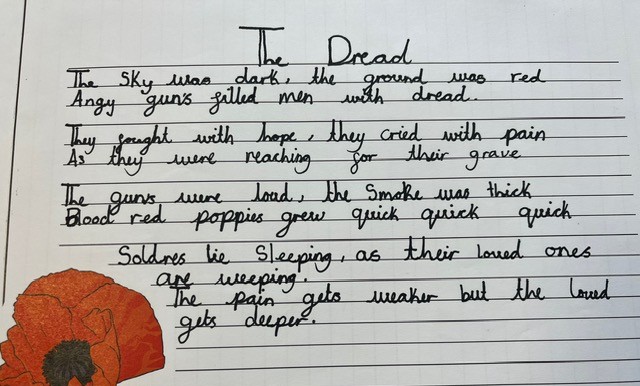 The Dread
The Sky was dark, the ground was red
Angy guns filled men with dread.
They fought with hope, they cried with pain
As they were reaching for their grave
The guns were loud, the smoke was thick
Blood red poppies grew quick quick quick
Soldres lie sleeping, as their loved ones
are weeping.
The pain gets weaker but the loved
gets deeper.